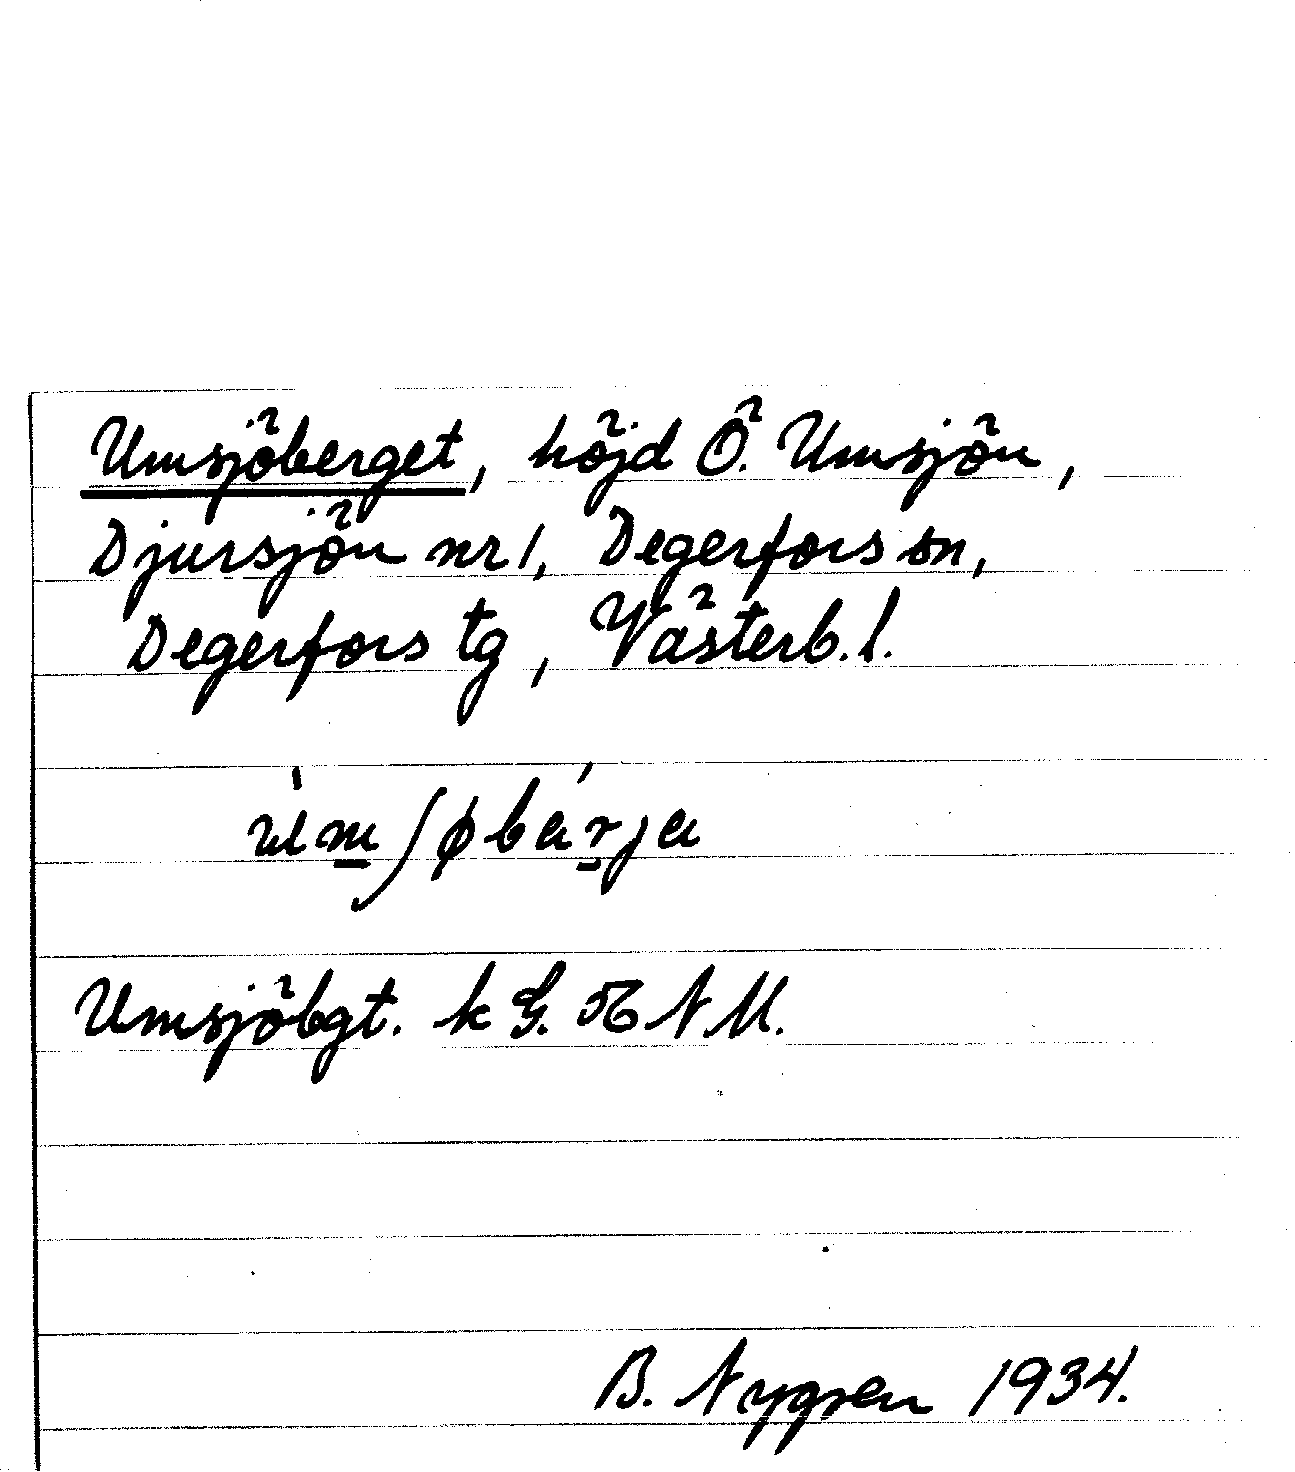 Umsjöberget, höjd Ö. Umsjön,
Djursjön nr 1, Degerfors sn,
Degerfors tg, Västerb. l.
Umsjöbgt. k G. 56 NM.
B. Nygren 1934.